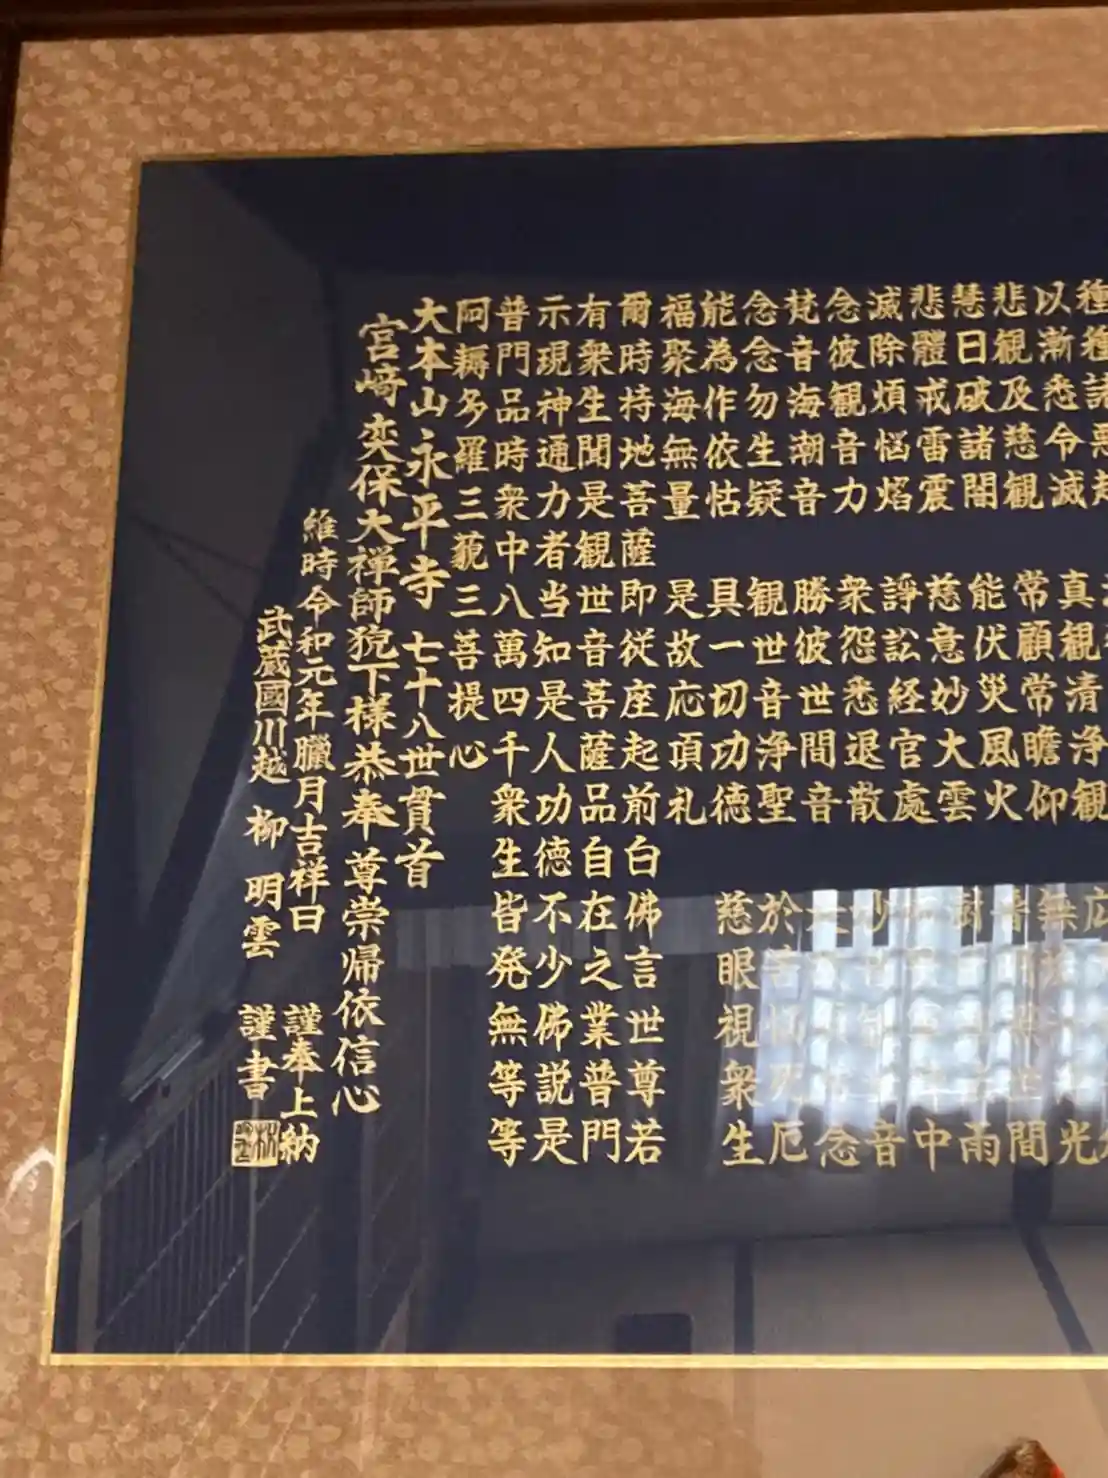 種種諸悪趣
以漸悉令滅 真観清浄観 広
悲観及慈観 常顧常瞻仰 無光
慧日破諸闇 能伏災風火 普間
悲體戒雷震 慈意妙大雲 澍雨
滅除煩悩焔 諍訟経官處 中
念彼観音力 衆怨悉退散 妙音
梵音海潮音 勝彼世間音 念
念念勿生疑 観世音浄聖 於苦悩死厄
能為作依怙 具一切功徳 慈眼視衆生
福聚海無量 是故応頂礼
爾時持地菩薩即従座起前白佛言世尊若
有衆生聞是観世音菩薩品自在之業普門
示現神通力者当知是人功徳不少佛説是
普門品時衆中八萬四千衆生皆発無等等
阿耨多羅三藐三菩提心
大本山永平寺 七十八世貫首
宮崎奕保大禅師猊下様恭奉 尊崇帰依信心
維時令和元年臘月吉祥日 謹奉上納
武蔵國川越 柳明雲 謹書